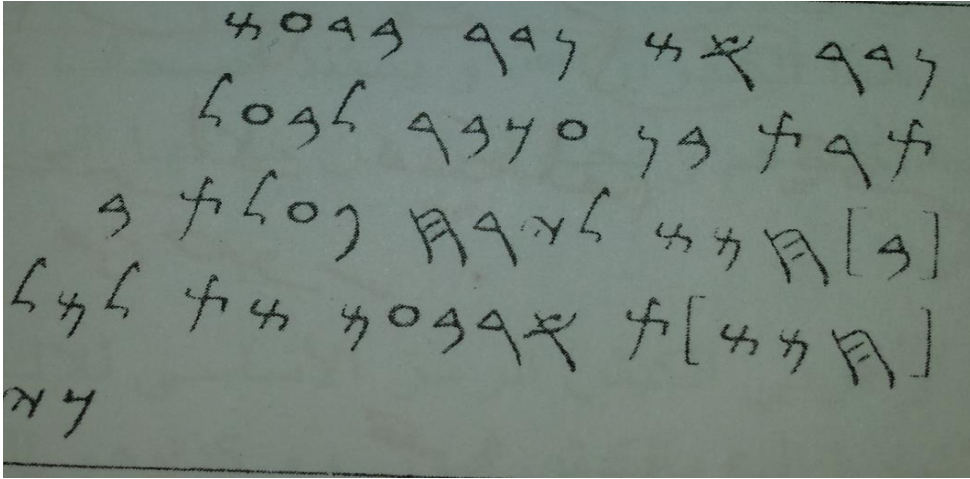 𐤍𐤃𐤓 𐤀𐤔 𐤍𐤃𐤓 𐤁𐤃𐤏𐤔
𐤕𐤓𐤕 𐤁𐤍 𐤏𐤊𐤁𐤓 𐤋𐤁𐤏𐤋
[𐤁] 𐤇𐤌𐤔 𐤋𐤉𐤓𐤇 𐤐𐤏𐤋𐤕 𐤁
[𐤇𐤌𐤔] 𐤕 𐤀𐤓𐤁𐤏𐤌 𐤔𐤕 𐤋𐤌𐤋
𐤊𐤉